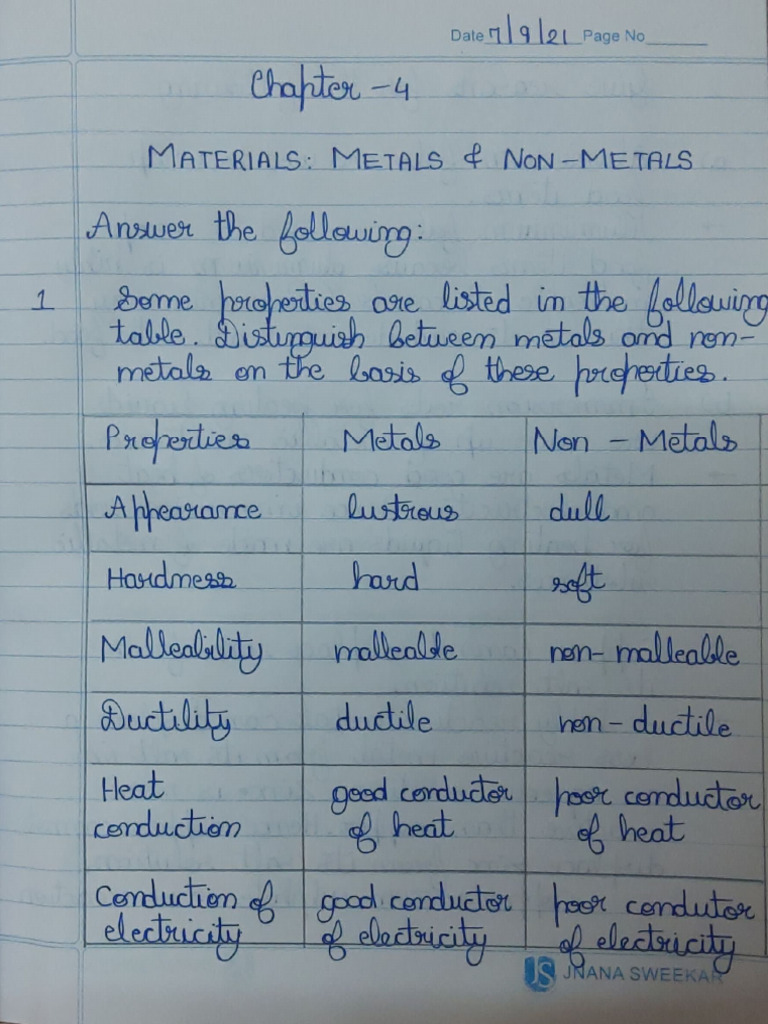 Date 7/9/21 Page No
Chapter - 4
MATERIALS: METALS & NON-METALS
Answer the following:
1 Some properties are listed in the following
table. Distinguish between metals and non-
metals on the basis of these properties.
Properties Metals Non - Metals
Appearance lustrous dull
Hardness hard soft
Malleability malleable non-malleable
Ductility ductile non-ductile
Heat good conductor poor conductor
conduction of heat of heat
Conduction of good conductor poor condutor
electricity of electricity of electricity
JS JNANA SWEEKAR